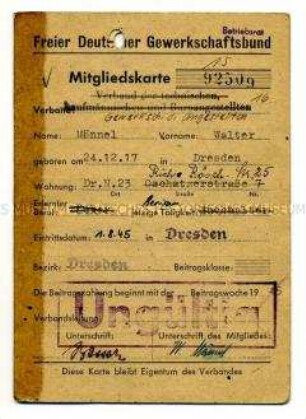 Betriebsrat
Freier Deutscher Gewerkschaftsbund
15
Mitgliedskarte 92509
Verband der technischen,
Verband: kaufmännischen und Büroangestellten 16
Gewerksch. d. Angestellten
Name: Männel Vorname: Walter
geboren am 24.12.17 in Dresden,
Wohnung: Dr.N.23 Oschatzerstraße 7
Ort Straße Nr.
Erlernter
Beruf: jetzige Tätigkeit:
Eintrittsdatum: 1.8.45 in Dresden
Bezirk: Dresden Beitragsklasse:
Die Beitragszahlung beginnt mit der Beitragswoche 19
Verbandsleitung:
Ungültig
Unterschrift: Unterschrift des Mitgliedes:
Diese Karte bleibt Eigentum des Verbandes